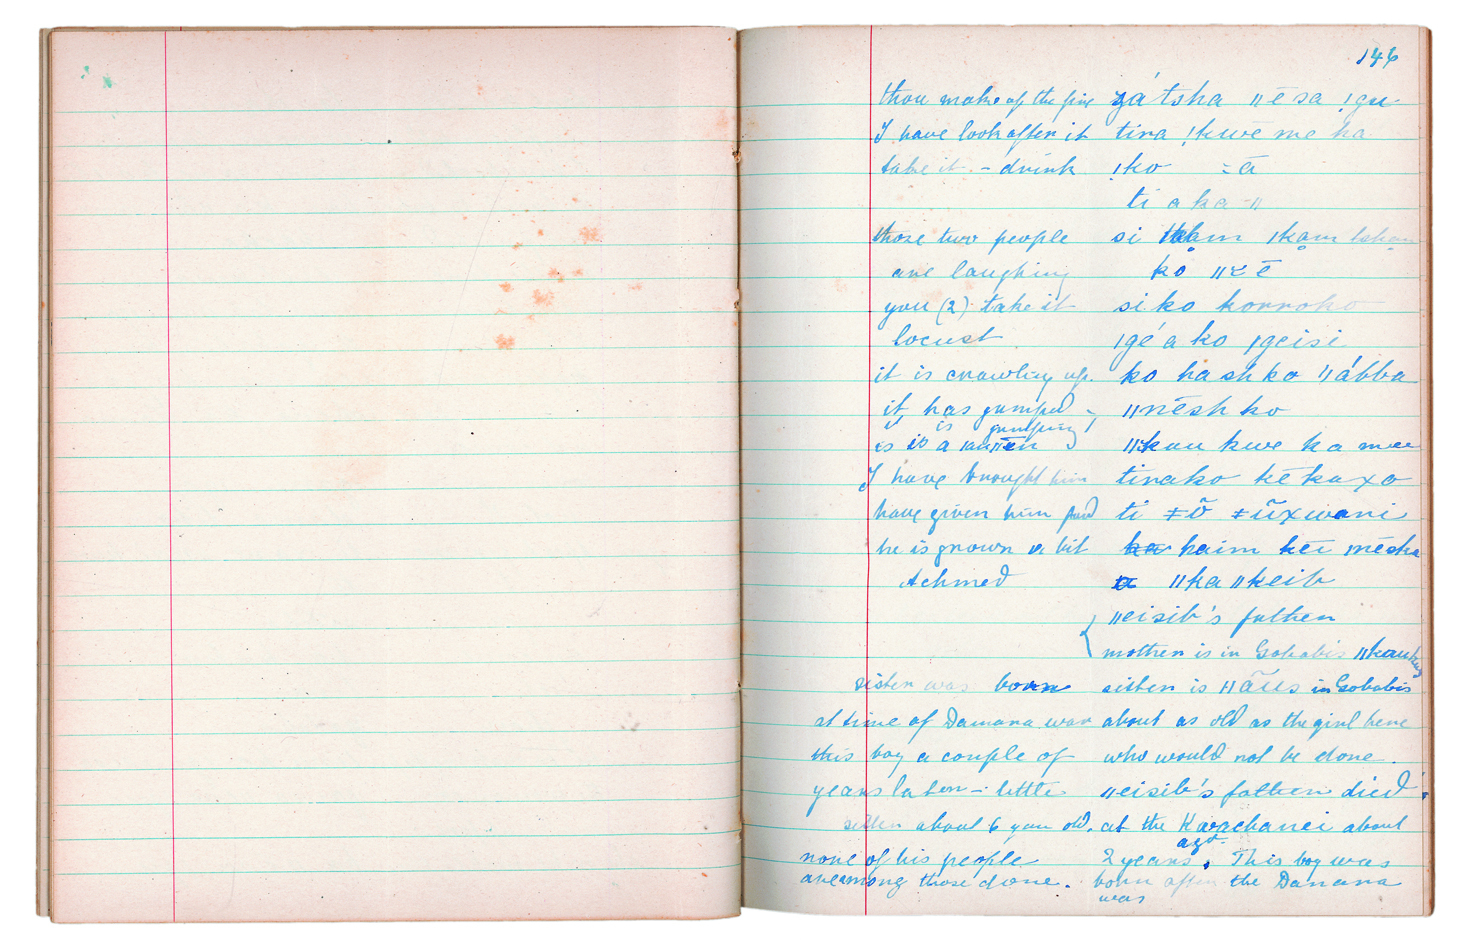 146
thou make up the fire gá'tsha ǁēsa ǃgu
I have look after it tira ǃkwē me ha
take it - drink ǃko = ā
ti aka - ǁ
those two people si ǀkam
are laughing ko ǁɛē
you (2) take it siko korroko
locust ǀgéako ǀgeisi
it is crawling up ko hashko ǁábba
it has jumped - ǁnēshko
it is jumping
is is a ǁkau kwe ka
I have brought him tirako kēkaxo
have given him food ti ǂū ǂūxwani
he is grown a bit haim kēi
Achmed ǁkaǁkeib
ǁeisib's father
mother is in Gobabis
sister was born sister is ǁãũs in Gobabis
at time of Damara war about as old as the girl here
this boy a couple of who would not be done.
years later - little ǁeisib's father died
sister about 6 year old. at the about
ago
none of his people 2 years. This boy was
are among those done. born after the Damara
was